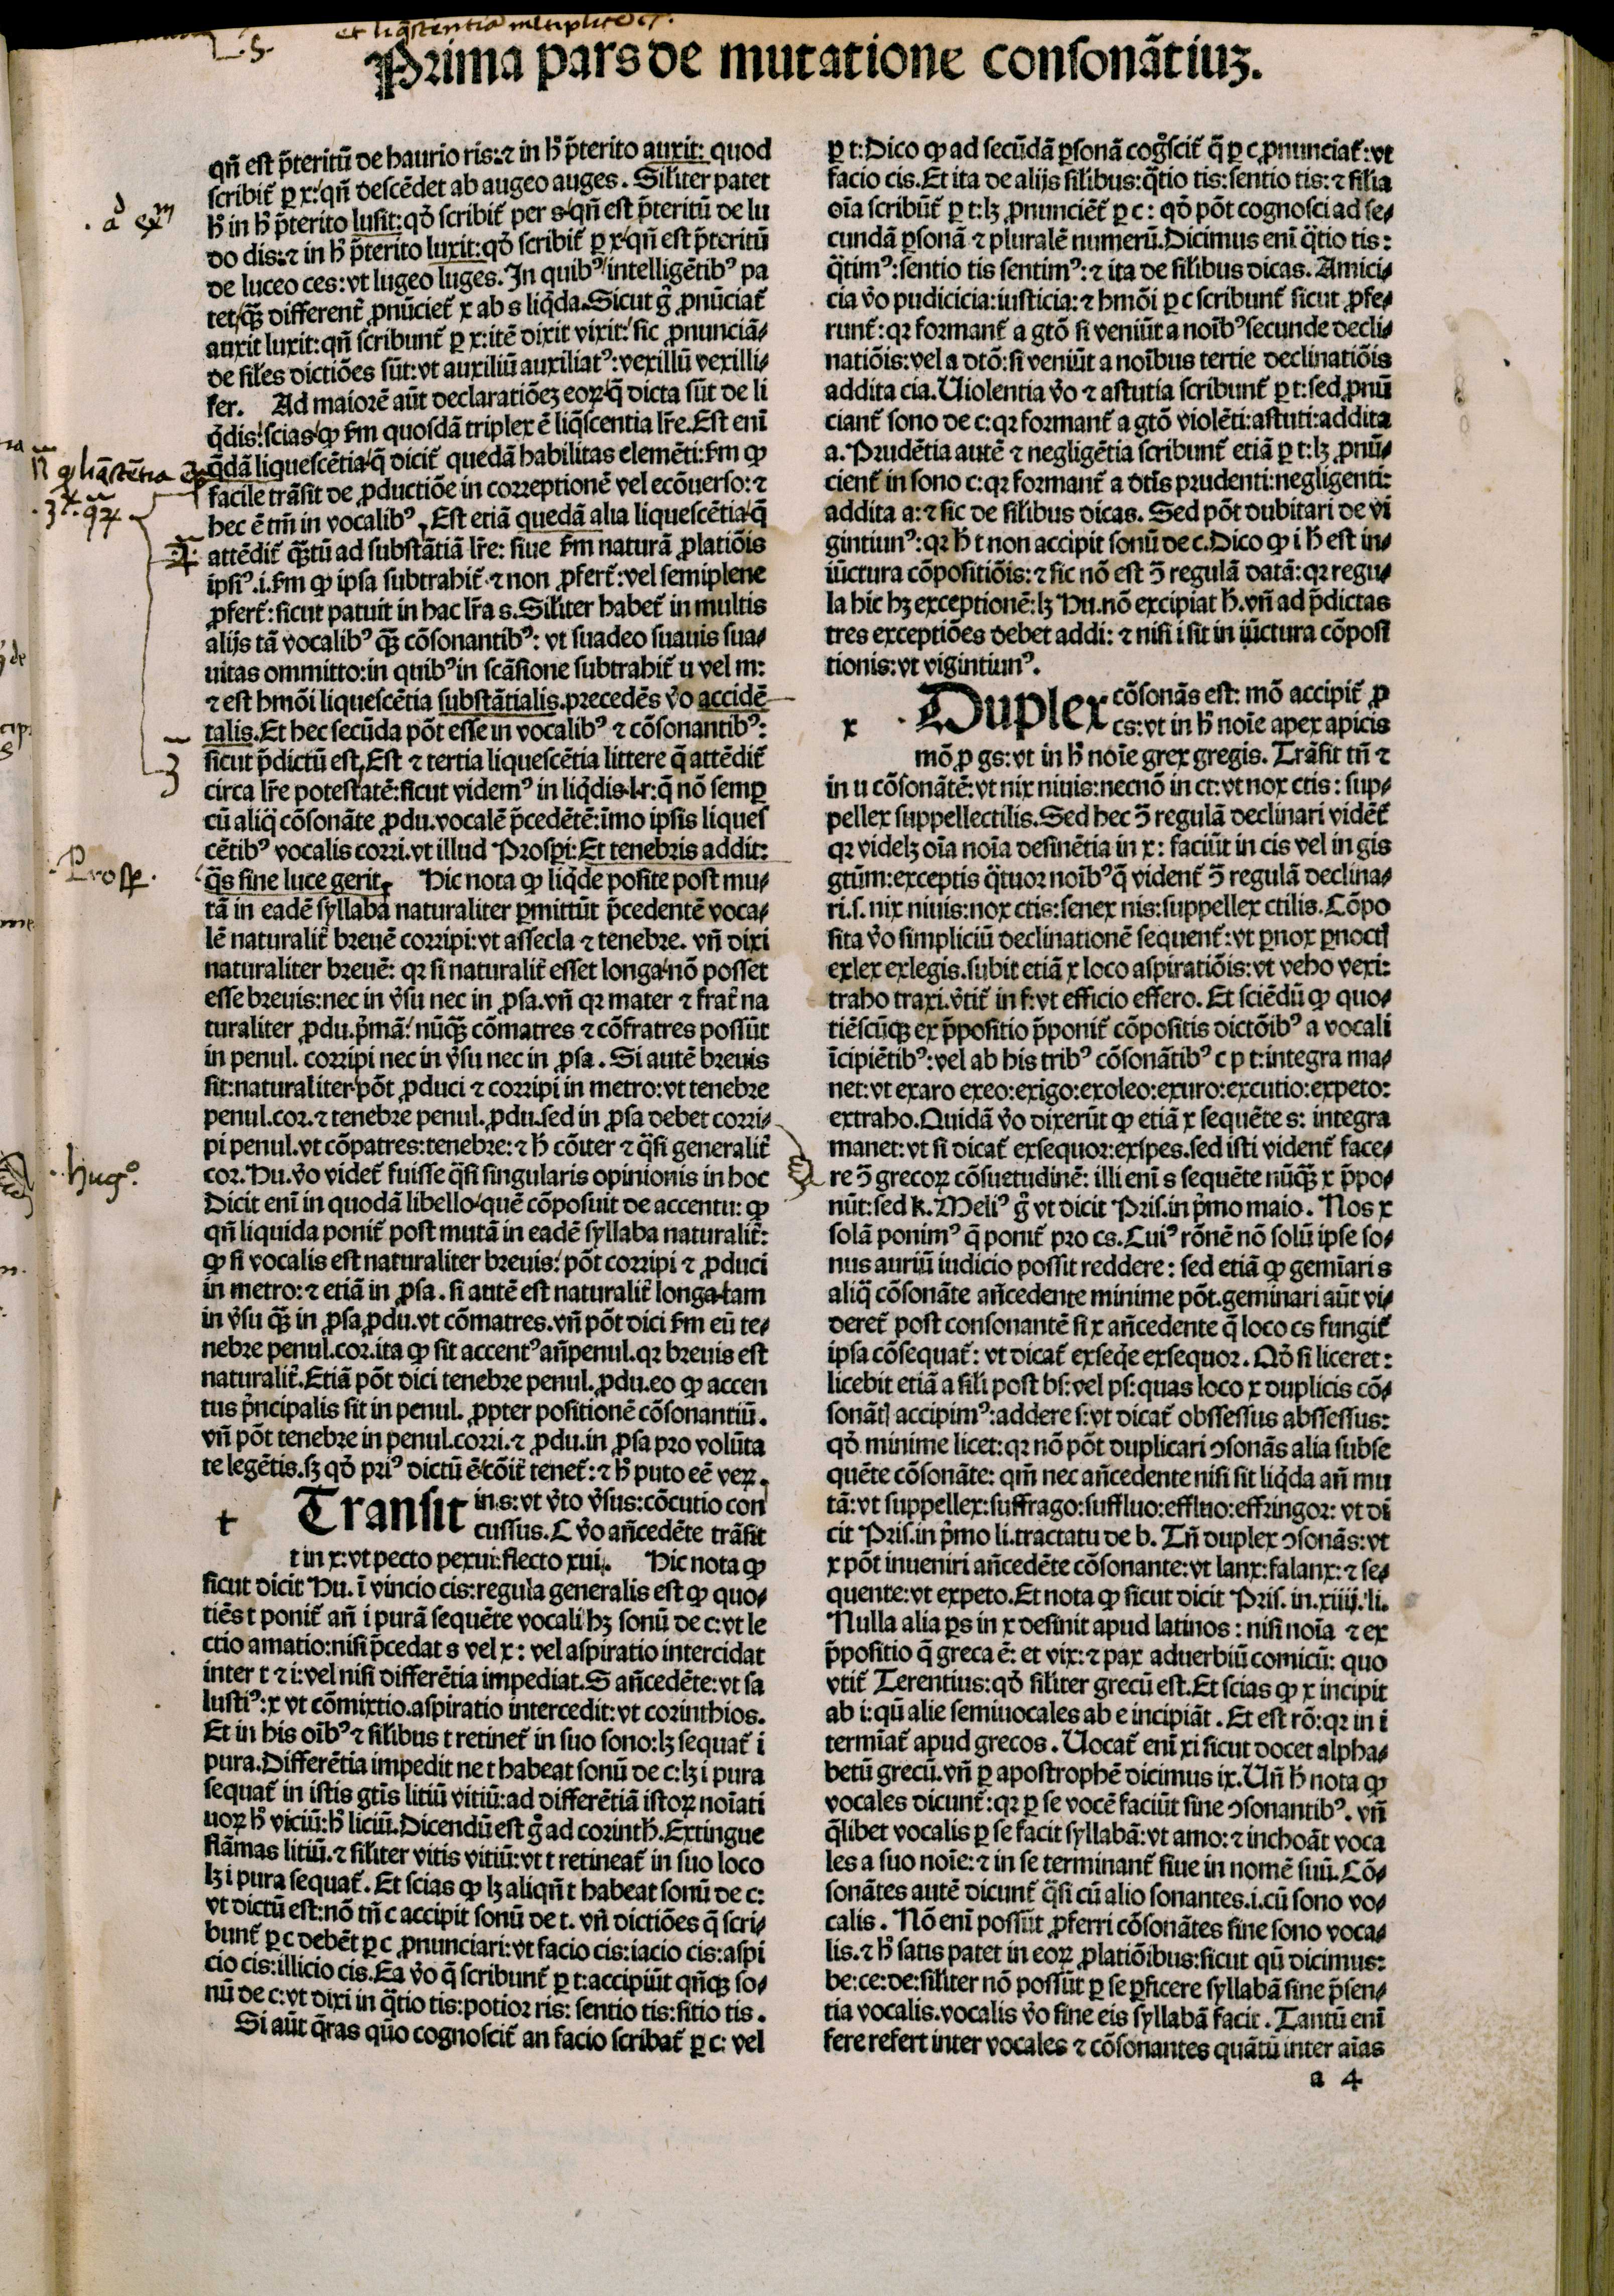 et liq̃scentia multiplicit̃.
.5.
Prima pars de mutatione consonãtiuꝫ.
qñ est p̃teritũ de haurio ris: ⁊ in hͦ p̃terito auxit: quod
scribit̃ ꝑ x: qñ descẽdet ab augeo auges. Siliter patet
hͦ in hͦ p̃terito lusit: qđ scribit̃ per s qñ est p̃teritũ de lu
do dis: ⁊ in hͦ p̃terito luxit: qđ scribit̃ ꝑ x qñ est p̃teritũ
de luceo ces: vt lugeo luges. In quibꝰ intelligẽtibꝰ pa
tet/qꝫ̃ different̃ ꝓnũciet̃ x ab s liq̃da. Sicut g̃ ꝓnũciat̃
auxit luxit: qñ scribunt̃ ꝑ x: itẽ dixit vixit: sic ꝓnunciã⸗
de siles dictiões sũt: vt auxiliũ auxiliatꝰ: vexillũ vexilli⸗
fer. Ad maiorẽ aũt declaratiõeꝫ eoꝝ q̃ dicta sũt de li
q̃dis: scias ꝙ ẜm quosdã triplex ẽ liq̃scentia lr̃e. Est enĩ
q̃dã liquescẽtia q̃ dicit̃ quedã habilitas elemẽti: ẜm ꝙ
facile trãsit de ꝓductiõe in correptionẽ vel ecõuerso: ⁊
hec ẽ tm̃ in vocalibꝰ. Est etiã quedã alia liquescẽtia q̃
attẽdit̃ qꝫ̃tũ ad substãtiã lr̃e: siue ẜm naturã ꝓlatiõis
ipsiꝰ .i. ẜm ꝙ ipsa subtrahit̃ ⁊ non ꝓfert̃: vel semiplene
ꝓfert̃: sicut patuit in hac lr̃a s. Siliter habet̃ in multis
alijs tã vocalibꝰ qꝫ̃ cõsonantibꝰ: vt suadeo suauis sua⸗
uitas ommitto: in quibꝰ in scãsione subtrahit̃ u vel m:
⁊ est hmõi liquescẽtia substãtialis. precedẽs v̾o accidẽ
talis. Et hec secũda põt esse in vocalibꝰ ⁊ cõsonantibꝰ:
sicut p̃dictũ est. Est ⁊ tertia liquescẽtia littere q̃ attẽdit̃
circa lr̃e potestatẽ: sicut videmꝰ in liq̃dis l r: q̃ nõ semꝑ
cũ aliq̃ cõsonãte ꝓdu. vocalẽ p̃cedẽtẽ: ĩmo ipsis liques
cẽtibꝰ vocalis corri. vt illud Prosꝑi: Et tenebris addit:
q̃s sine luce gerit. Hic nota ꝙ liq̃de posite post mu⸗
tã in eadẽ syllaba naturaliter ꝑmittũt p̃cedentẽ voca⸗
lẽ naturalit̃ breuẽ corripi: vt assecla ⁊ tenebre. vñ dixi
naturaliter breuẽ: qꝛ si naturalit̃ esset longa nõ posset
esse breuis: nec in v̾su nec in ꝓsa. vñ qꝛ mater ⁊ frat̃ na
turaliter ꝓdu. p̃mã: nũqꝫ̃ cõmatres ⁊ cõfratres possũt
in penul. corripi nec in v̾su nec in ꝓsa. Si autẽ breuis
sit: naturaliter põt ꝓduci ⁊ corripi in metro: vt tenebre
penul. cor. ⁊ tenebre penul. ꝓdu. sed in ꝓsa debet corri⸗
pi penul. vt cõpatres: tenebre: ⁊ h̃ cõiter ⁊ q̃si generalit̃
cor. Hu. v̾o videt̃ fuisse q̃si singularis opinionis in hoc
Dicit enĩ in quodã libello quẽ cõposuit de accentu: ꝙ
qñ liquida ponit̃ post mutã in eadẽ syllaba naturalit̃:
ꝙ si vocalis est naturaliter breuis: põt corripi ⁊ ꝓduci
in metro: ⁊ etiã in ꝓsa. si autẽ est naturalit̃ longa tam
in v̾su qꝫ̃ in ꝓsa ꝓdu. vt cõmatres. vñ põt dici ẜm eũ te⸗
nebre penul. cor. ita ꝙ sit accentꝰ añpenul. qꝛ breuis est
naturalit̃. Etiã põt dici tenebre penul. ꝓdu. eo ꝙ accen
tus p̃ncipalis sit in penul. ꝓpter positionẽ cõsonantiũ.
vñ põt tenebre in penul. corri. ⁊ ꝓdu. in ꝓsa pro volũta
te legẽtis. sꝫ qđ priꝰ dictũ ẽ cõit̃ tenet̃: ⁊ hͦ puto eẽ veꝝ.
t Transit in.s: vt v̾to v̾sus: cõcutio con
cussus. C v̾o añcedẽte trãsit
t in x: vt pecto pexui: flecto xui. Hic nota ꝙ
sicut dicit Hu. ĩ vincio cis: regula generalis est ꝙ quo⸗
tiẽs t ponit̃ añ i purã sequẽte vocali hꝫ sonũ de c: vt le
ctio amatio: nisi p̃cedat s vel x: vel aspiratio intercidat
inter t ⁊ i: vel nisi differẽtia impediat. S añcedẽte: vt sa
lustiꝰ: x vt cõmixtio. aspiratio intercedit: vt corinthios.
Et in his oĩbꝰ ⁊ silibus t retinet̃ in suo sono: lꝫ sequat̃ i
pura. Differẽtia impedit ne t habeat sonũ de c: lꝫ i pura
sequat̃ in istis gt̃is litiũ vitiũ: ad differẽtiã istoꝝ noĩati
uoꝝ hͦ viciũ: hͦ liciũ. Dicendũ est g̃ ad corinth̃. Extingue
flãmas litiũ. ⁊ siliter vitis vitiũ: vt t retineat̃ in suo loco
lꝫ i pura sequat̃. Et scias ꝙ lꝫ aliqñ t habeat sonũ de c:
vt dictũ est: nõ tñ c accipit sonũ de t. vñ dictiões q̃ scri⸗
bunt̃ ꝑ c debẽt ꝑ c ꝓnunciari: vt facio cis: iacio cis: aspi
cio cis: illicio cis. Ea v̾o q̃ scribunt̃ ꝑ t: accipiũt qñqꝫ so⸗
nũ de c: vt dixi in q̃tio tis: potior ris: sentio tis: sitio tis.
Si aũt q̃ras quõ cognoscit̃ an facio scribat̃ ꝑ c: vel
ꝑ t: Dico ꝙ ad secũdã ꝑsonã cogͦscit̃ q̃ ꝑ c ꝓnunciat̃: vt
facio cis. Et ita de alijs silibus: q̃tio tis: sentio tis: ⁊ silia
oĩa scribũt̃ ꝑ t: lꝫ ꝓnunciẽt̃ ꝑ c: qđ põt cognosci ad se⸗
cundã ꝑsonã ⁊ pluralẽ numerũ. Dicimus enĩ q̃tio tis:
q̃timꝰ: sentio tis sentimꝰ: ⁊ ita de silibus dicas. Amici⸗
cia v̾o pudicicia: iusticia: ⁊ hmõi ꝑ c scribunt̃ sicut ꝓfe⸗
runt̃: qꝛ formant̃ a gtõ si veniũt a noĩbꝰ secunde decli⸗
natiõis: vel a dtõ: si veniũt a noĩbus tertie declinatiõis
addita cia. Uiolentia v̾o ⁊ astutia scribunt̃ ꝑ t: sed ꝓnũ
ciant̃ sono de c: qꝛ formant̃ a gtõ violẽti: astuti: addita
a. Prudẽtia autẽ ⁊ negligẽtia scribunt̃ etiã ꝑ t: lꝫ ꝓnũ⸗
cient̃ in sono c: qꝛ formant̃ a dt̃is prudenti: negligenti:
addita a: ⁊ sic de silibus dicas. Sed põt dubitari de vi
gintiunꝰ: qꝛ h̃ t non accipit sonũ de c. Dico ꝙ i h̃ est in⸗
iũctura cõpositiõis: ⁊ sic nõ est ↄ̃ regulã datã: qꝛ regu⸗
la hic hꝫ exceptionẽ: lꝫ Hu. nõ excipiat h̃. vñ ad p̃dictas
tres exceptiões debet addi: ⁊ nisi i sit in iũctura cõposi
tionis: vt vigintiunꝰ.
x Duplex cõsonãs est: mõ accipit̃ ꝓ
cs: vt in hͦ noĩe apex apicis
mõ ꝓ gs: vt in hͦ noĩe grex gregis. Trãsit tñ ⁊
in u cõsonãtẽ: vt nix niuis: necnõ in ct: vt nox ctis: sup⸗
pellex suppellectilis. Sed hec ↄ̃ regulã declinari vidẽt̃
qꝛ videlꝫ oĩa noĩa desinẽtia in x: faciũt in cis vel in gis
gtũm: exceptis q̃tuor noĩbꝰ q̃ vident̃ ↄ̃ regulã declina⸗
ri .s. nix niuis: nox ctis: senex nis: suppellex ctilis. Cõpo
sita v̾o simpliciũ declinationẽ sequent̃: vt ꝑnox ꝑnoctꝭ
exlex exlegis. subit etiã x loco aspiratiõis: vt veho vexi:
traho traxi. v̾tit̃ in f: vt efficio effero. Et sciẽdũ ꝙ quo⸗
tiẽscũqꝫ ex p̃positio p̃ponit̃ cõpositis dictõibꝰ a vocali
ĩcipiẽtibꝰ: vel ab his tribꝰ cõsonãtibꝰ c p t: integra ma⸗
net: vt exaro exeo: exigo: exoleo: exuro: excutio: expeto:
extraho. Quidã v̾o dixerũt ꝙ etiã x sequẽte s: integra
manet: vt si dicat̃ exsequor: exspes. sed isti vident̃ face⸗
re ↄ̃ grecoꝝ cõsuetudinẽ: illi enĩ s sequẽte nũqꝫ̃ x p̃po⸗
nũt: sed k. Meliꝰ g̃ vt dicit Pris. in p̃mo maio. Nos x
solã ponimꝰ q̃ ponit̃ pro cs. Cuiꝰ rõnẽ nõ solũ ipse so⸗
nus auriũ iudicio possit reddere: sed etiã ꝙ gemĩari s
aliq̃ cõsonãte añcedente minime põt. geminari aũt vi⸗
deret̃ post consonantẽ si x añcedente q̃ loco cs fungit̃
ipsa cõsequat̃: vt dicat̃ exseq̃e exsequor. Qđ si liceret:
licebit etiã a sili post bs: vel ps: quas loco x duplicis cõ⸗
sonãtꝭ accipimꝰ: addere s: vt dicat̃ obssessus abssessus:
qđ minime licet: qꝛ nõ põt duplicari ↄsonãs alia subse
quẽte cõsonãte: qm̃ nec añcedente nisi sit liq̃da añ mu
tã: vt suppellex: suffrago: suffluo: effluo: effringor: vt di
cit Pris. in p̃mo li. tractatu de b. Tñ duplex ↄsonãs: vt
x põt inueniri añcedẽte cõsonante: vt lanx: falanx: ⁊ se⸗
quente: vt expeto. Et nota ꝙ sicut dicit Pris. in .xiiij. li.
Nulla alia ꝑs in x desinit apud latinos: nisi noĩa ⁊ ex
p̃positio q̃ greca ẽ: et vix: ⁊ pax aduerbiũ comicũ: quo
vtit̃ Terentius: qđ siliter grecũ est. Et scias ꝙ x incipit
ab i: qũ alie semiuocales ab e incipiãt. Et est rõ: qꝛ in i
termĩat̃ apud grecos. Uocat̃ enĩ xi sicut docet alpha⸗
betũ grecũ. vñ ꝑ apostrophẽ dicimus ix. Uñ h̃ nota ꝙ
vocales dicunt̃: qꝛ ꝑ se vocẽ faciũt sine ↄsonantibꝰ. vñ
q̃libet vocalis ꝑ se facit syllabã: vt amo: ⁊ inchoãt voca
les a suo noĩe: ⁊ in se terminant̃ siue in nomẽ suũ. Cõ⸗
sonãtes autẽ dicunt̃ q̃si cũ alio sonantes .i. cũ sono vo⸗
calis. Nõ enĩ possũt ꝓferri cõsonãtes sine sono voca⸗
lis. ⁊ hͦ satis patet in eoꝝ ꝓlatiõibus: sicut qũ dicimus:
be: ce: de: siliter nõ possũt ꝑ se ꝑficere syllabã sine p̃sen⸗
tia vocalis. vocalis v̾o sine eis syllabã facit. Tantũ enĩ
fere refert inter vocales ⁊ cõsonantes quãtũ inter aĩas
a 4
Prosꝑ.
hugͦ.